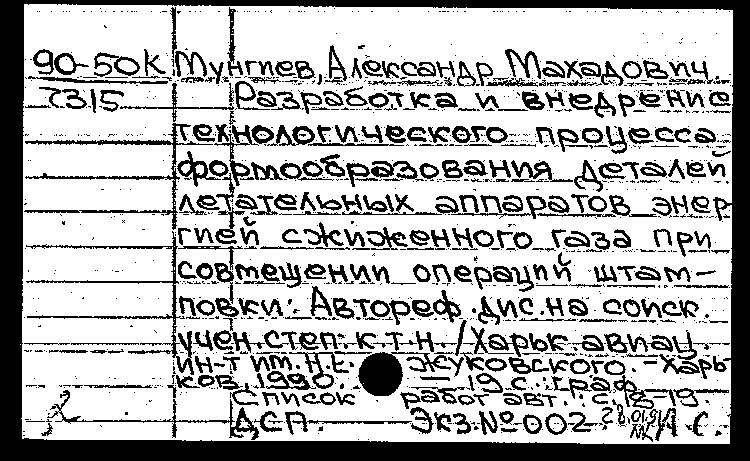 90-50к Мунгиев, Александр Махадович
2315 Разработка и внедрение
технологического процесса
формообразования деталей
летательных аппаратов энер-
гией сжиженного газа при
совмещении операций штам-
повки: Автореф. дис. на соиск.
учен. степ. к.т.н. / Харьк. авиац.
ин-т им. Н.Е. Жуковского. - Харь-
ков, 1990. - 19 с.: граф.
Список работ авт.: с. 18-19.
ДСП. Экз. № 002